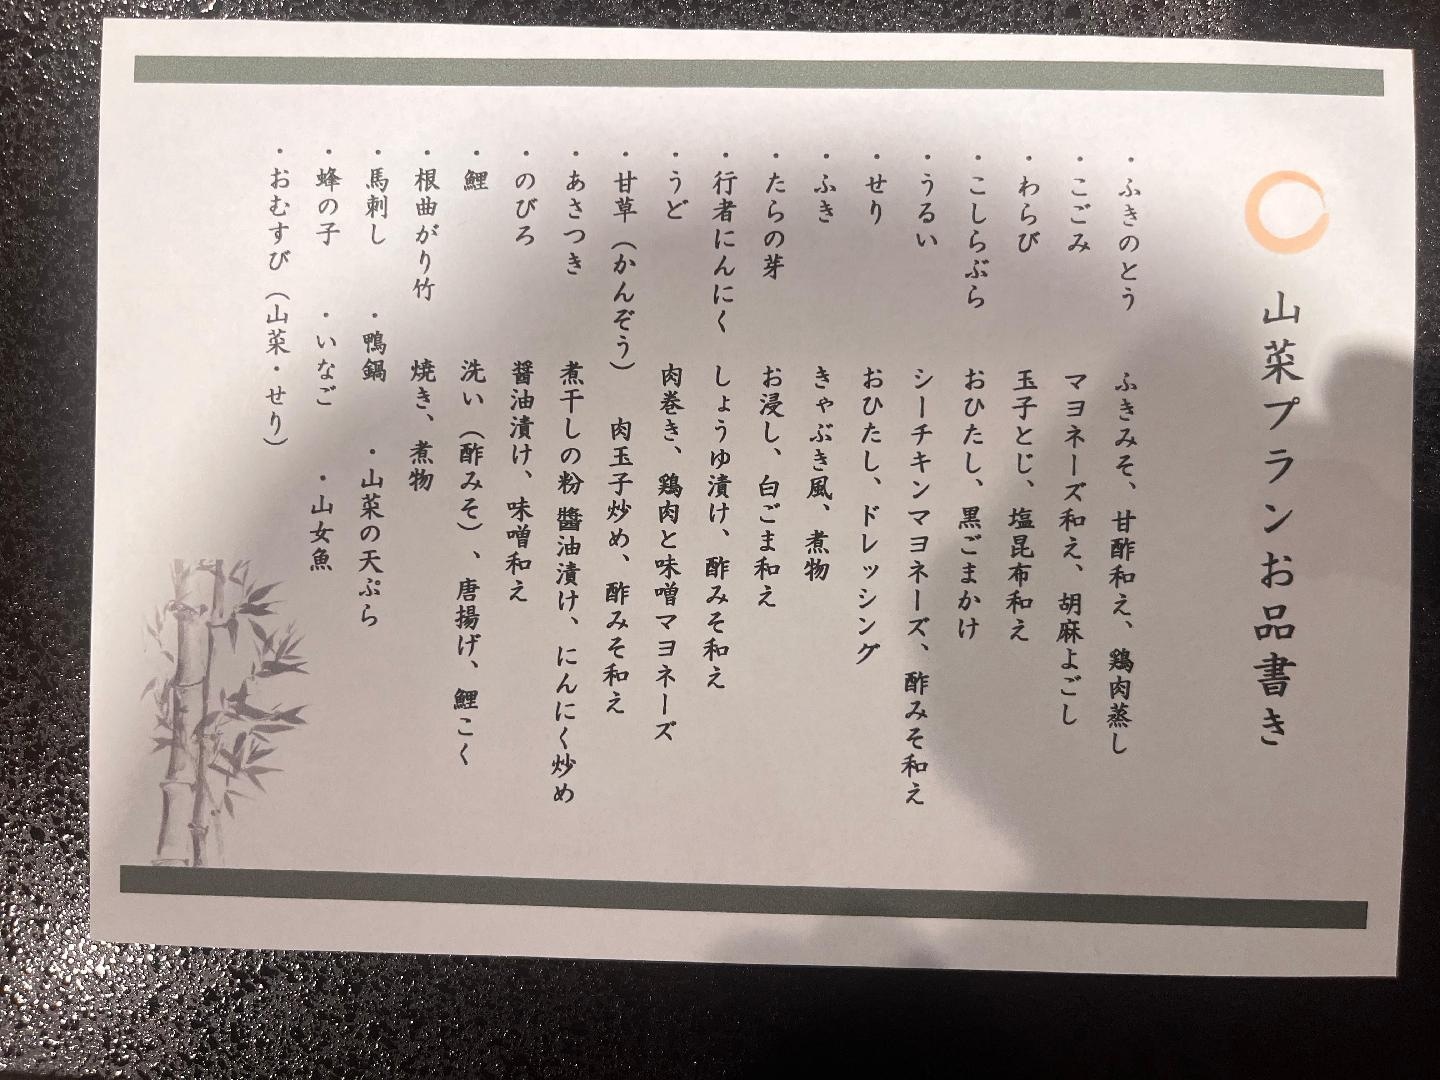 山菜プランお品書き
・ふきのとう　ふきみそ、甘酢和え、鶏肉蒸し
・こごみ　マヨネーズ和え、胡麻よごし
・わらび　玉子とじ、塩昆布和え
・こしらぶら　おひたし、黒ごまかけ
・うるい　シーチキンマヨネーズ、酢みそ和え
・せり　おひたし、ドレッシング
・ふき　きゃぶき風、煮物
・たらの芽　お浸し、白ごま和え
・行者にんにく　しょうゆ漬け、酢みそ和え
・うど　肉巻き、鶏肉と味噌マヨネーズ
・甘草（かんぞう）　肉玉子炒め、酢みそ和え
・あさつき　煮干しの粉醬油漬け、にんにく炒め
・のびろ　醤油漬け、味噌和え
・鯉　洗い（酢みそ）、唐揚げ、鯉こく
・根曲がり竹　焼き、煮物
・馬刺し　・鴨鍋　・山菜の天ぷら
・蜂の子　・いなご　・山女魚
・おむすび（山菜・せり）